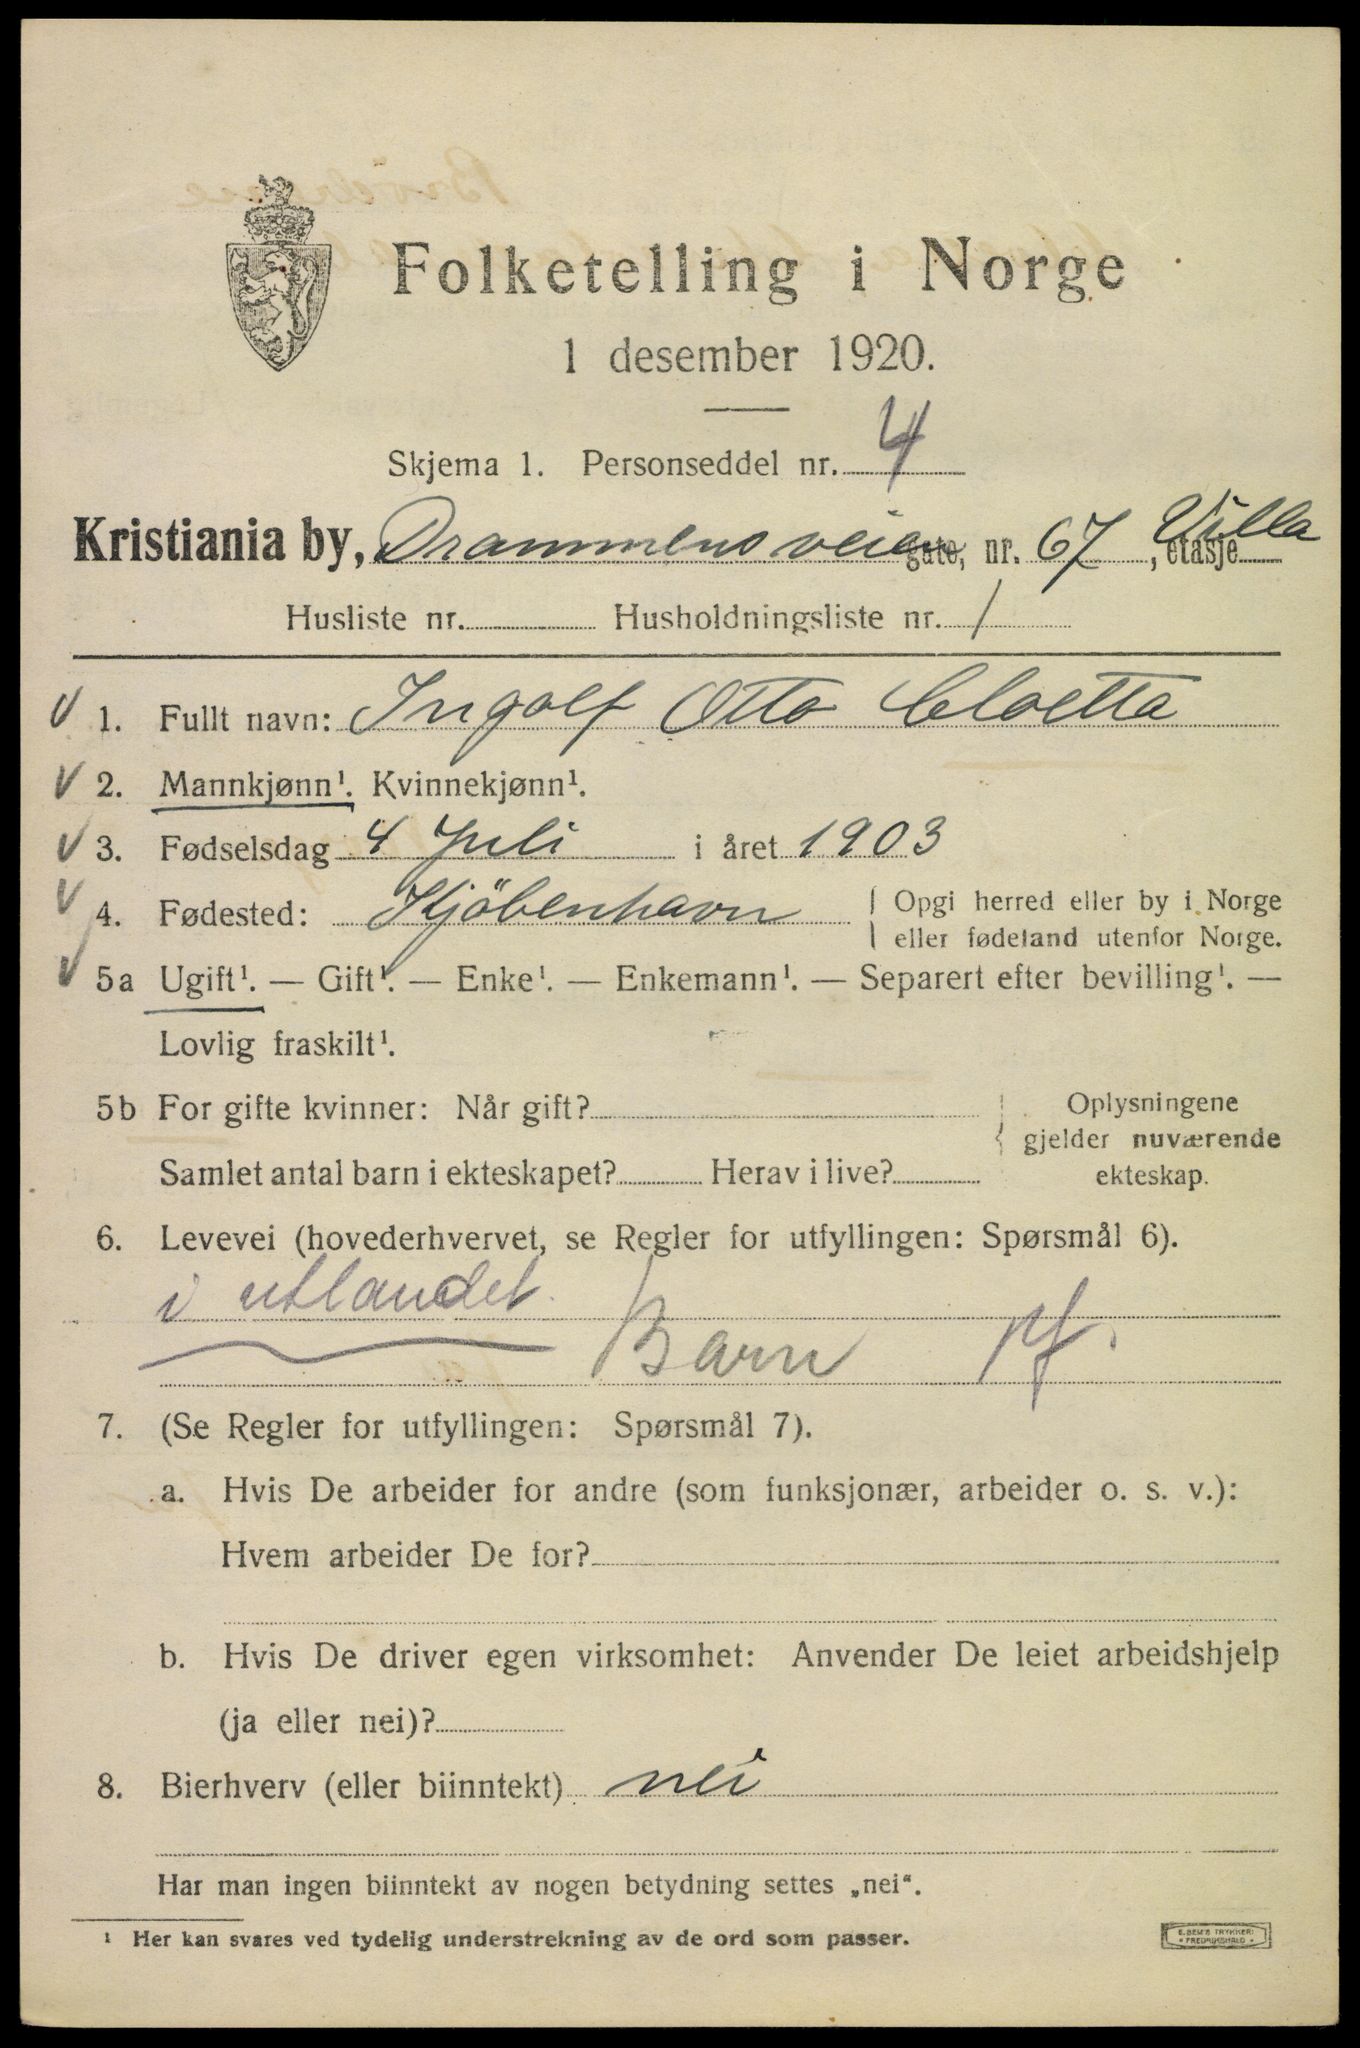 Folketelling i Norge
1 desember 1920.
Skjema 1. Personseddel nr. 4
Kristiania by, Drammensveien gate, nr. 67, Villa etasje
Husliste nr. Husholdningsliste nr. 1
1. Fullt navn: Ingolf Otto Cloetta
2. Mannkjønn¹. Kvinnekjønn¹.
3. Fødselsdag 4 Juli i året 1903
4. Fødested: Kjöbenhavn Opgi herred eller by i Norge
eller fødeland utenfor Norge.
5a Ugift¹. — Gift¹. — Enke¹. — Enkemann¹. — Separert efter bevilling¹. —
Lovlig fraskilt¹.
5b For gifte kvinner: Når gift? Oplysningene
gjelder nuværende
Samlet antal barn i ekteskapet? Herav i live? ekteskap.
6. Levevei (hovederhvervet, se Regler for utfyllingen: Spørsmål 6).
i utlandet
Barn
7. (Se Regler for utfyllingen: Spørsmål 7).
a. Hvis De arbeider for andre (som funksjonær, arbeider o. s. v.):
Hvem arbeider De for?
b. Hvis De driver egen virksomhet: Anvender De leiet arbeidshjelp
(ja eller nei)?
8. Bierhverv (eller biinntekt) nei
Har man ingen biinntekt av nogen betydning settes „nei“.
¹ Her kan svares ved tydelig understrekning av de ord som passer.
E. SEM'S TRYKKERI
FREDRIKSHALD